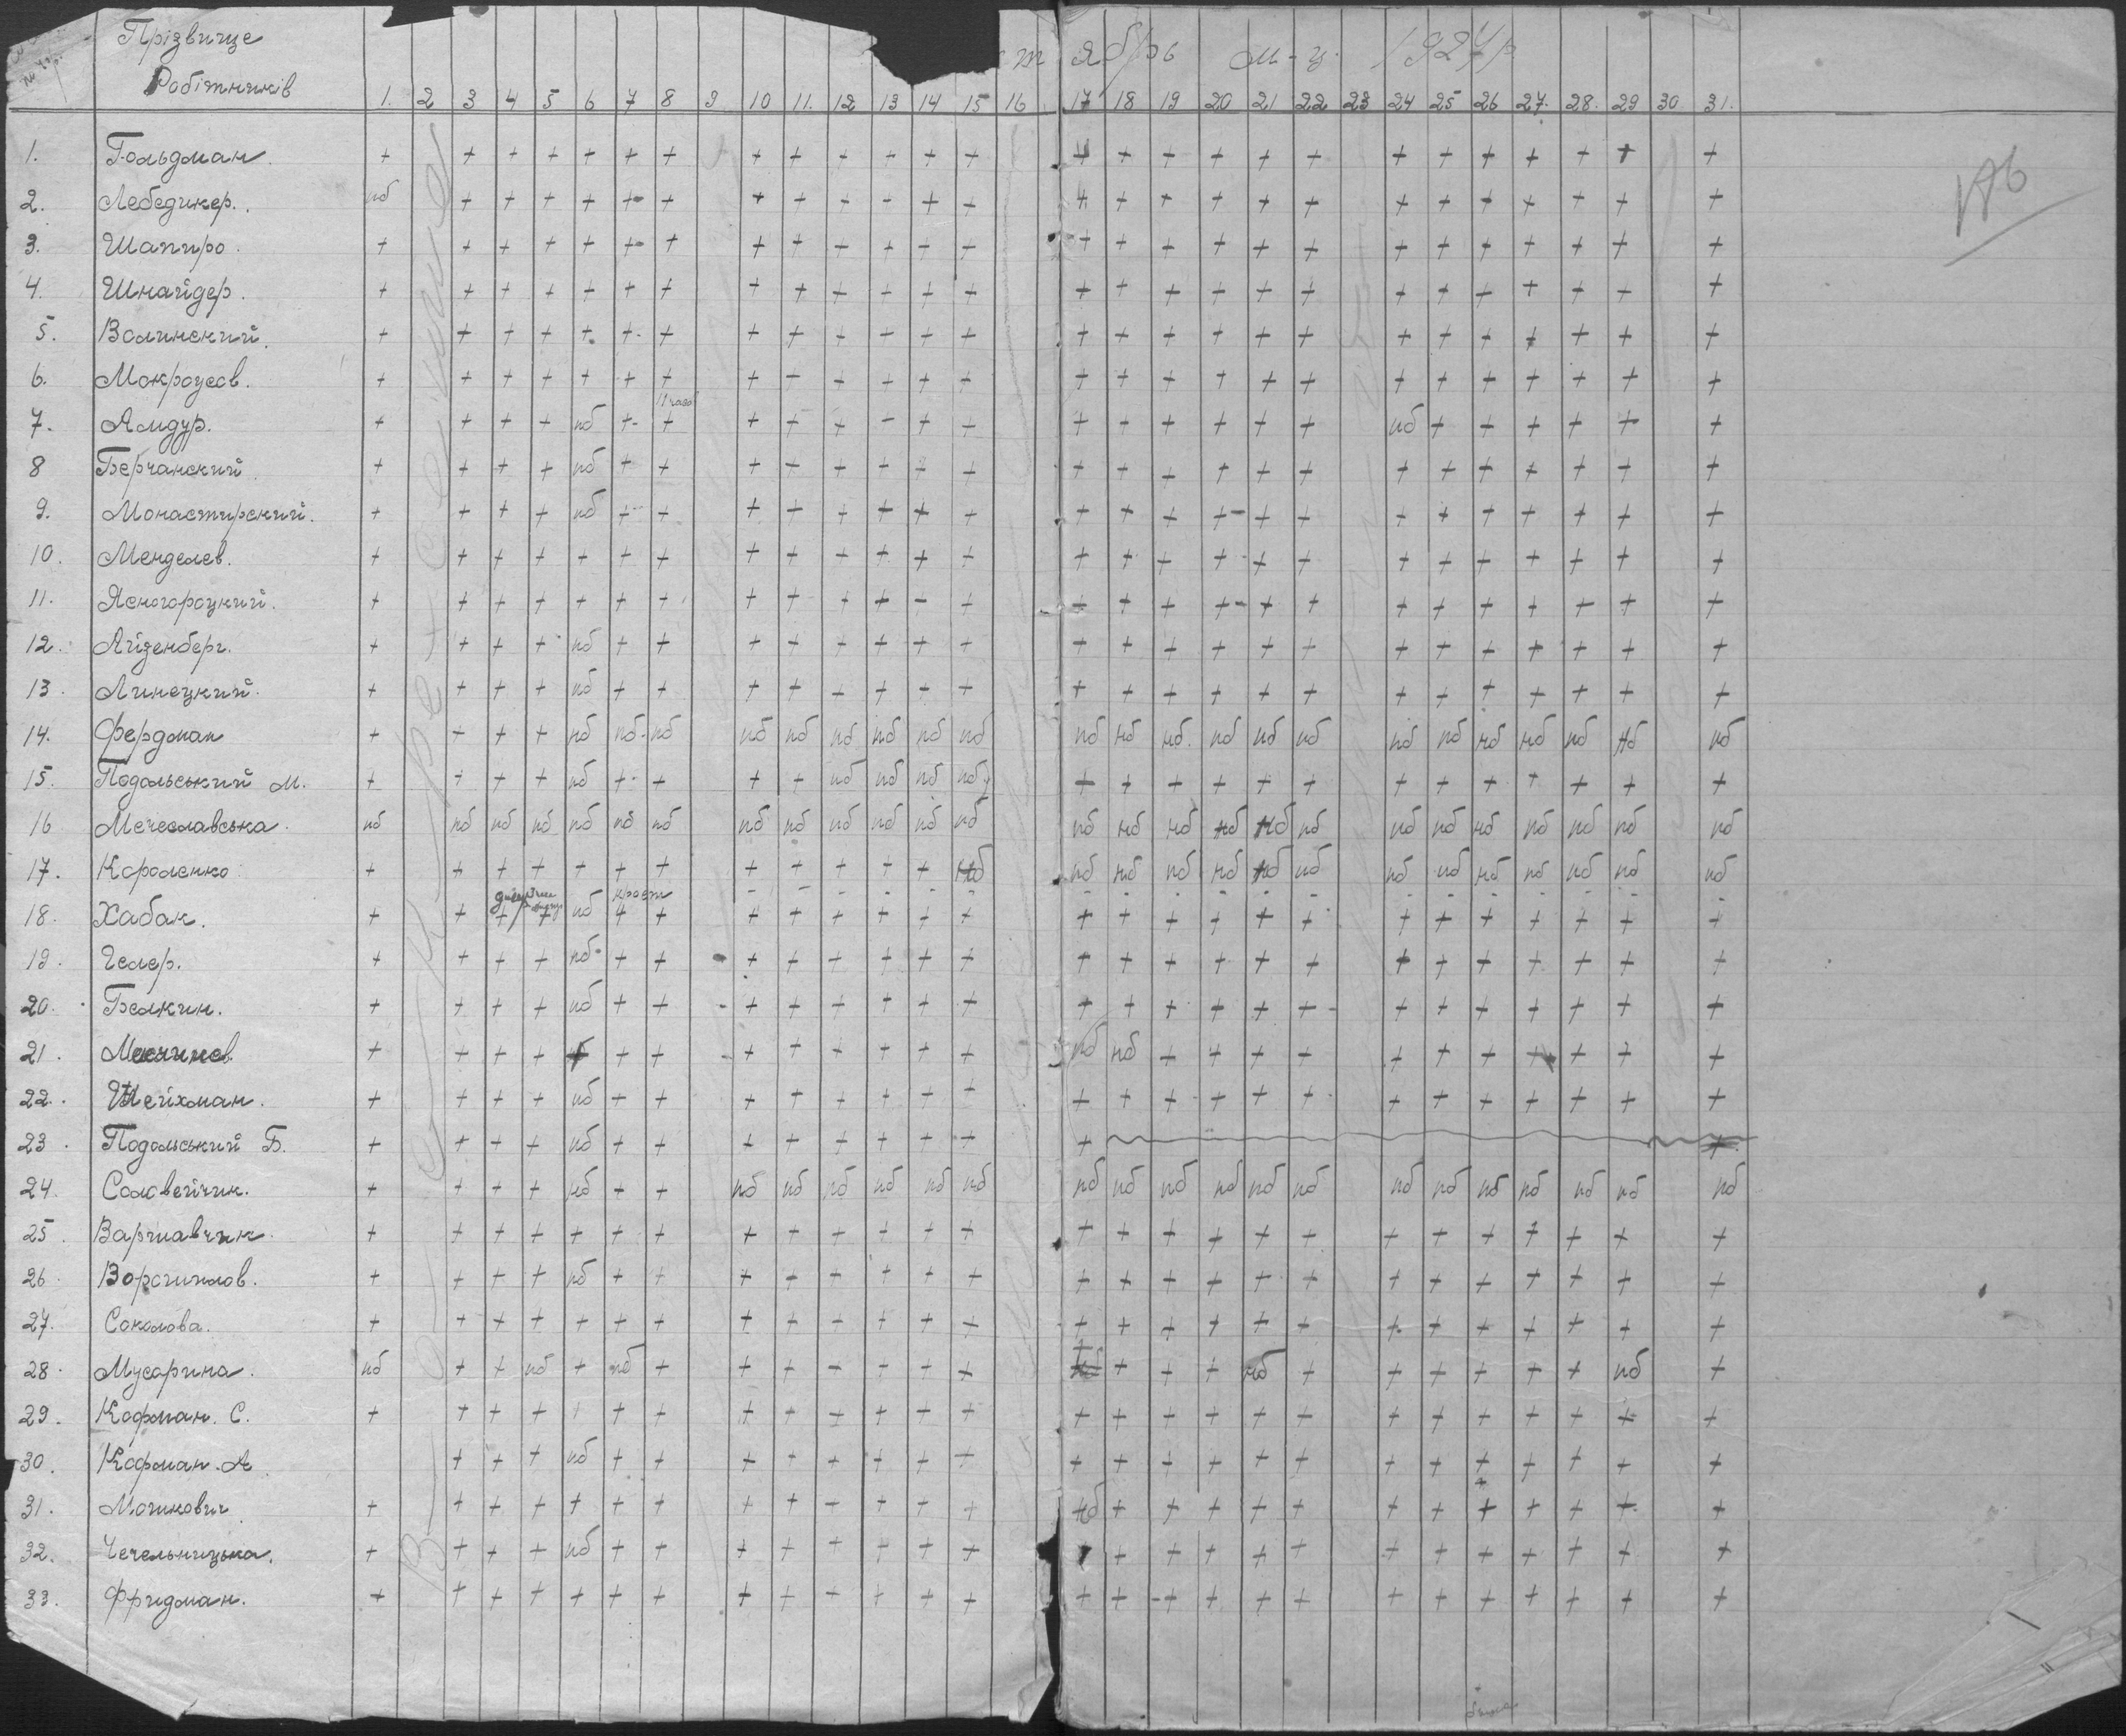 Прізвище
Робітників
тябрь м-ц. 1927 р.
1. 2 3 4 5 6 7 8 9 10 11. 12 13 14 15 16 17 18 19 20 21 22 23 24 25 26 27. 28. 29 30 31.
1. Гольдман. + + + + + + + + + + + + + + + + + + + + + + + + + +
2. Лебедикер. нб + + + + + + + + + + + + + + + + + + + + + + + + +
3. Шапиро. + + + + + + + + + + + + + + + + + + + + + + + + + +
4. Шнайдер. + + + + + + + + + + + + + + + + + + + + + + + + + +
5. Волинский. + + + + + + + + + + + + + + + + + + + + + + + + + +
6. Мокроусов. + + + + + + + + + + + + + + + + + + + + + + + + + +
7. Амдур. + + + + нб + + + + + + + + + + + + + + нб + + + + + +
8 Берчанский + + + + нб + + + + + + + + + + + + + + + + + + + + +
9. Монастирский. + + + + нб + + + + + + + + + + + + + + + + + + + + +
10. Менделев. + + + + + + + + + + + + + + + + + + + + + + + + + +
11. Ясногороцкий. + + + + + + + + + + + + + + + + + + + + + + + + + +
12. Айзенберг. + + + + нб + + + + + + + + + + + + + + + + + + + + +
13. Линецкий. + + + + нб + + + + + + + + + + + + + + + + + + + + +
14. Фердман + + + + нб нб нб нб нб нб нб нб нб нб нб нб нб нб нб нб нб нб нб нб нб нб
15. Подольський М. + + + + нб + + + + нб нб нб нб + + + + + + + + + + + + +
16 Мечеславська. нб нб нб нб нб нб нб нб нб нб нб нб нб нб нб нб нб нб нб нб нб нб нб нб нб нб
17. Короленко + + + + + + + + + + + + нб нб нб нб нб нб нб нб нб нб нб нб нб нб
18. Хабак. + + + + нб + + + + + + + + + + + + + + + + + + + + +
19. Гелер. + + + + нб + + + + + + + + + + + + + + + + + + + + +
20. Белкин. + + + + нб + + + + + + + + + + + + + + + + + + + + +
21. + + + + + + + + + + + + + нб нб + + + + + + + + + + +
22. Шейхман. + + + + нб + + + + + + + + + + + + + + + + + + + + +
23. Подольський Б. + + + + нб + + + + + + + + + +
24. Соловейчик. + + + + нб + + нб нб нб нб нб нб нб нб нб нб нб нб нб нб нб нб нб нб нб
25. Варшавчик + + + + + + + + + + + + + + + + + + + + + + + + + +
26. Ворошилов. + + + + нб + + + + + + + + + + + + + + + + + + + + +
27. Соколова. + + + + + + + + + + + + + + + + + + + + + + + + + +
28. Мусарина. нб + + нб + нб + + + + + + + + + + + нб + + + + + + нб +
29. Кофман. С. + + + + + + + + + + + + + + + + + + + + + + + + +
30. Кофман. А + + + нб + + + + + + + + + + + + + + + + + + + + +
31. Мошкович + + + + + + + + + + + + + нб + + + + + + + + + + + +
32. Чечельницька. + + + + нб + + + + + + + + + + + + + + + + + + + +
33. Фридман. + + + + + + + + + + + + + + + + + + + + + + + + + +